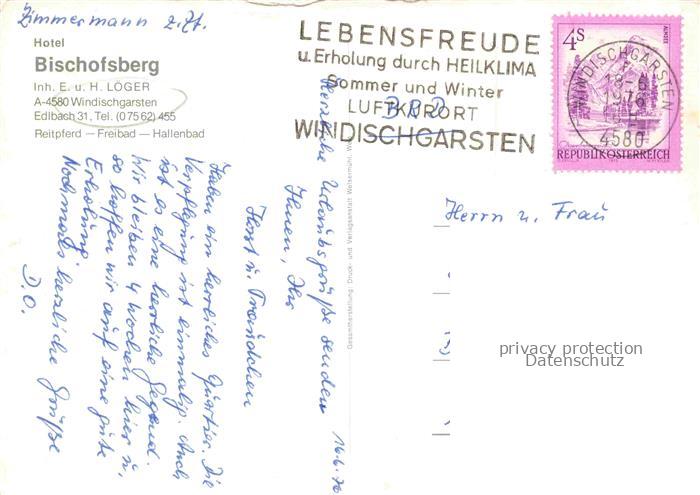 Zimmermann z.Zt.
Hotel
Bischofsberg
Inh. E. u. H. LÖGER
A-4580 Windischgarsten
Edlbach 31, Tel. (07562) 455
Reitpferd — Freibad — Hallenbad
LEBENSFREUDE
u. Erholung durch HEILKLIMA
Sommer und Winter
LUFTKURORT
WINDISCHGARSTEN
4S
ALMSEE
REPUBLIK ÖSTERREICH
WINDISCHGARSTEN
1976
4580
BRD
16.6.76
Herzliche Urlaubsgrüße senden
Ihnen, Ihr
Horst u. Traudchen
Haben ein herrliches Quartier. Die
Verpflegung ist einmalig. Auch
ist es eine herrliche Gegend.
Wir bleiben 4 Wochen hier u.
so hoffen wir auf eine gute
Erholung.
Nochmals herzliche Grüße
D.O.
Gesamtherstellung: Druck- und Verlagsanstalt
Herrn u. Frau
privacy protection
Datenschutz